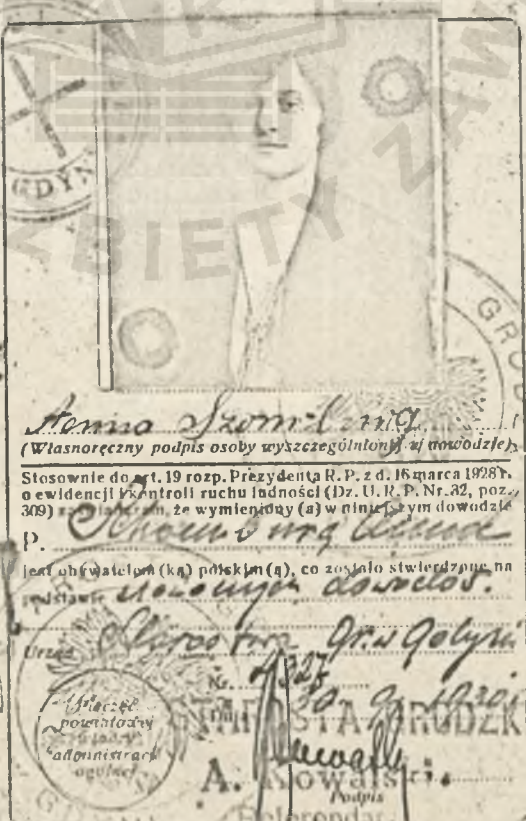 GDYN
ZBIETY ZAW
GROD
Anna Szomburg
(Własnoręczny podpis osoby wyszczególnionej w dowodzie)
Stosownie do art. 19 rozp. Prezydenta R. P. z d. 16 marca 1928 r.
o ewidencji i kontroli ruchu ludności (Dz. U. R. P. Nr. 32, poz.
309) zaświadczam, że wymieniony (a) w niniejszym dowodzie
P. Szomburg Anna
jest obywatelem (ką) polskim (ą), co zostało stwierdzone na
podstawie złożonych dowodów.
Urząd Starostwo Gr. w Gdyni
Nr. 4327
Pieczęć
powiatowej
władzy
administracji
ogólnej
STAROSTA GRODZK
A. Kowalski
Podpis
Referendar